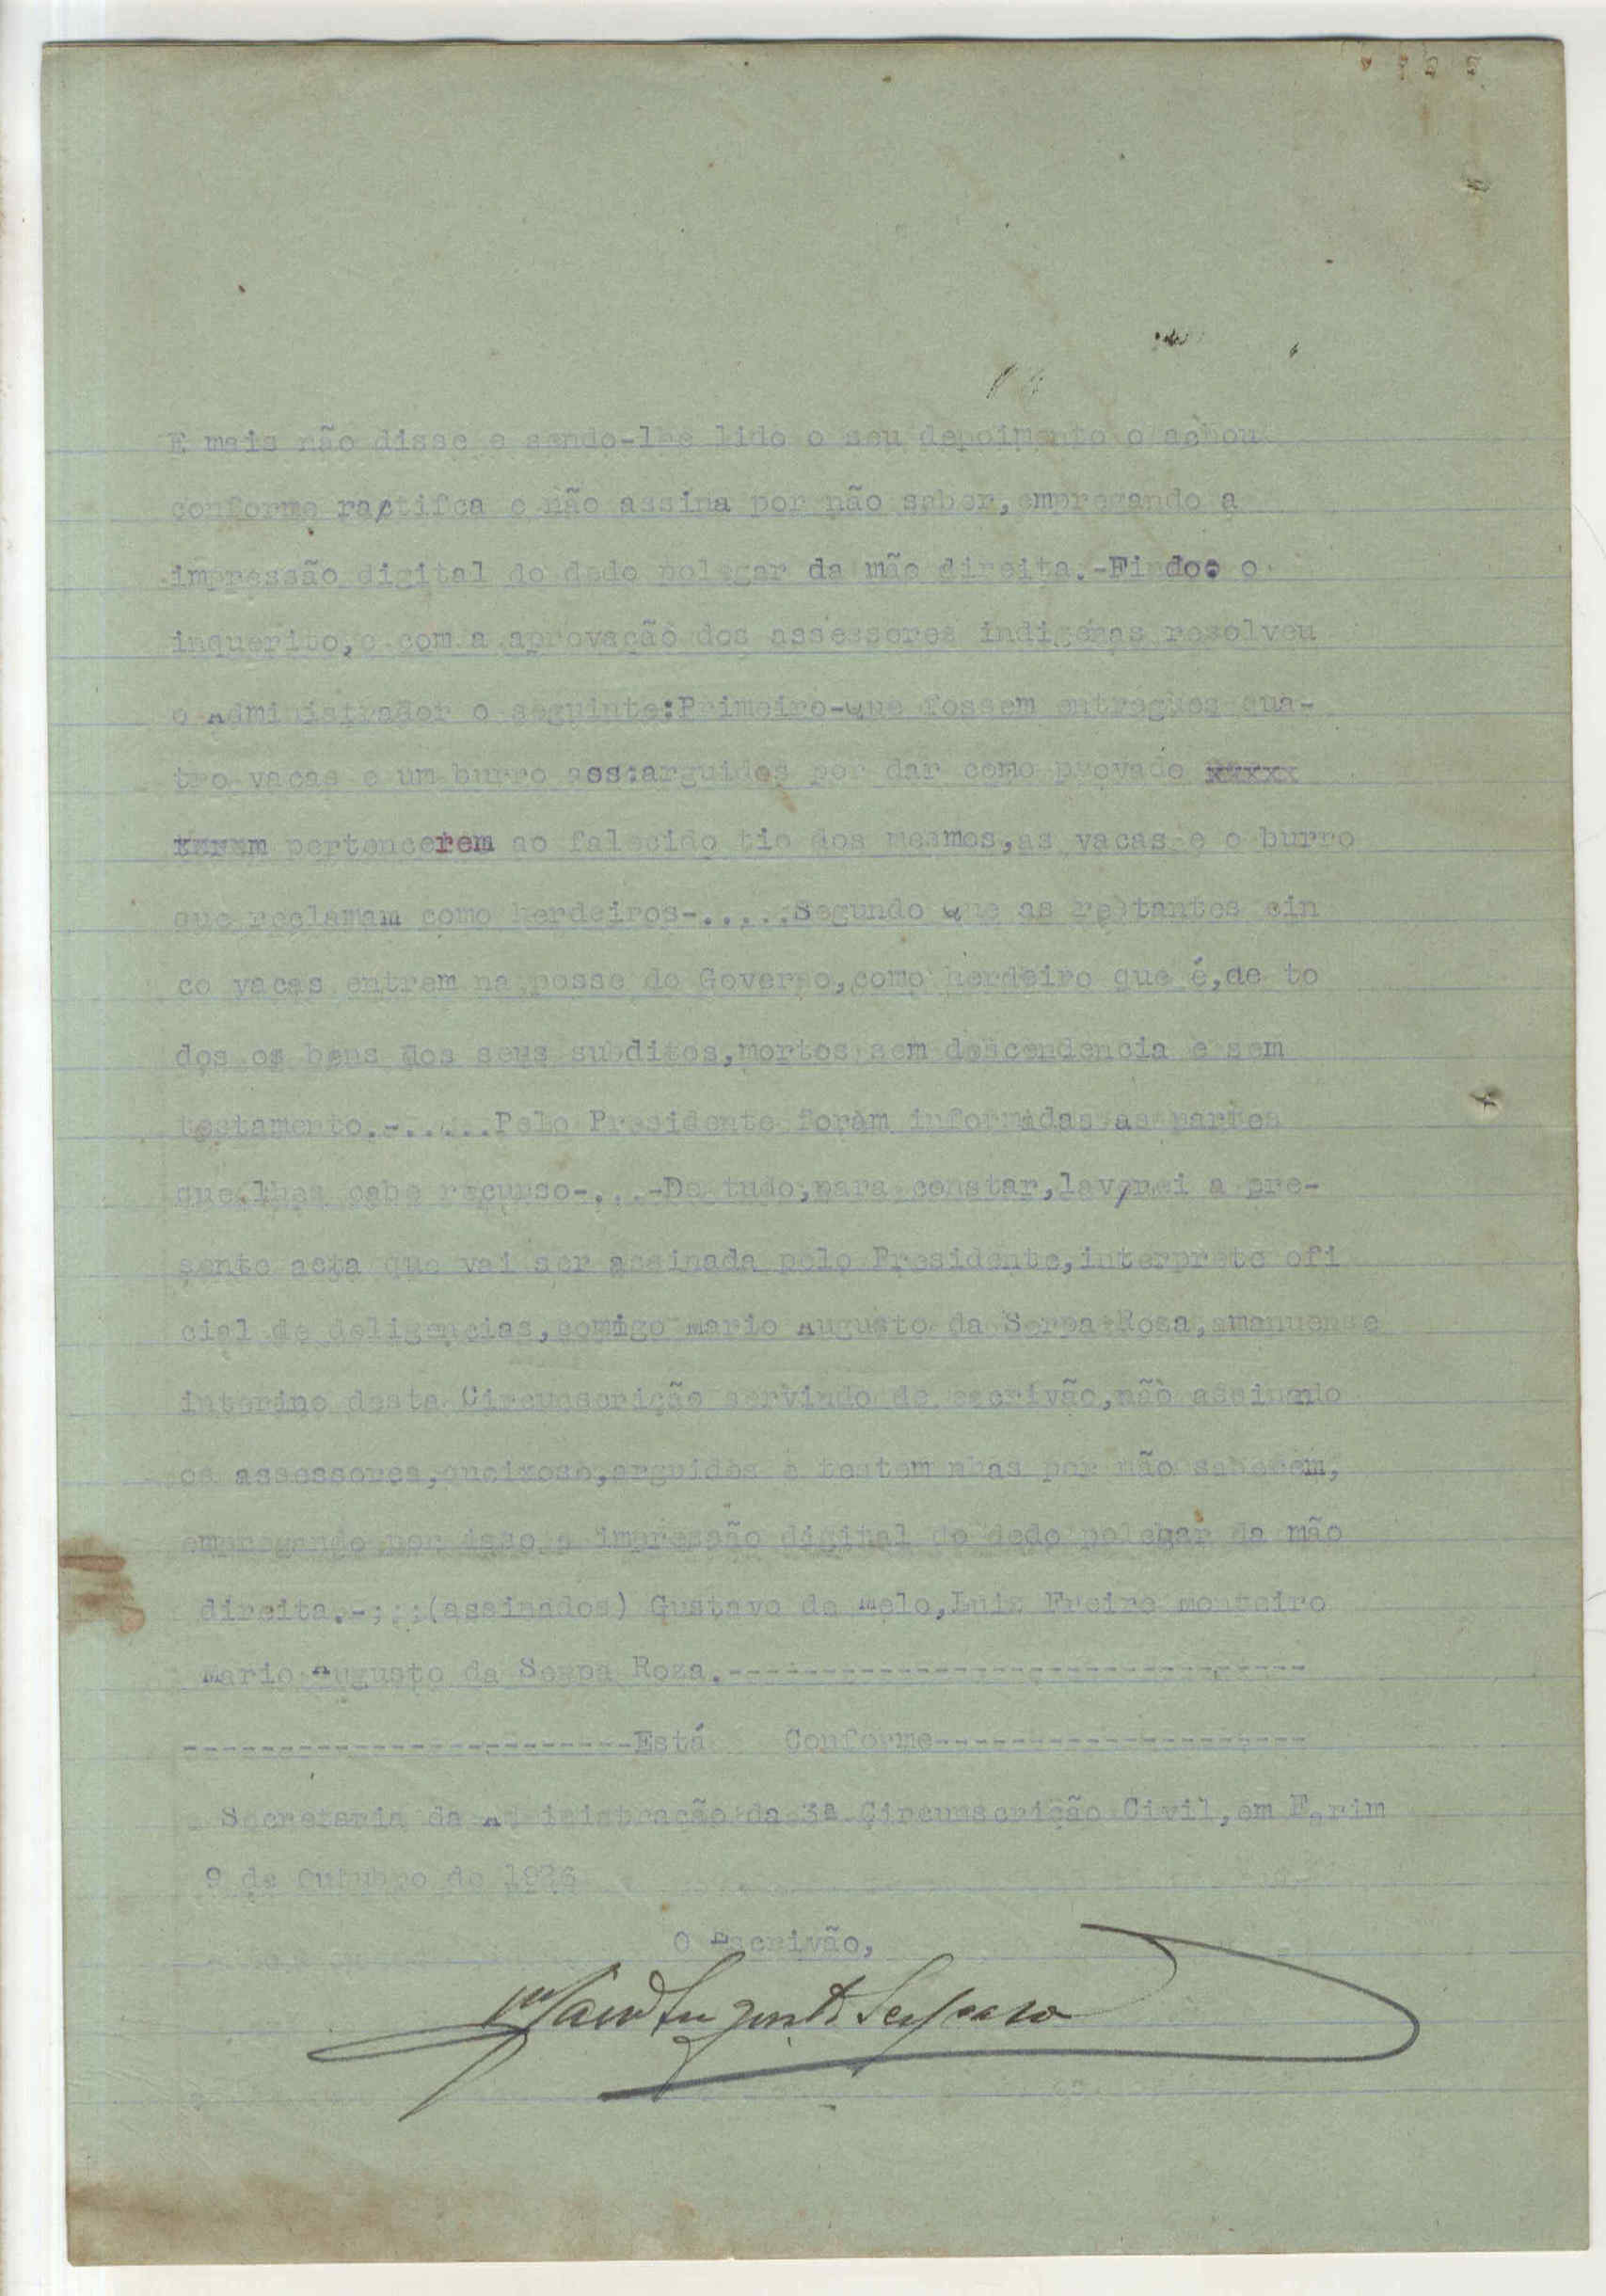 E mais não disse e sendo-lhe lido o seu depoimento o achou
conforme ractifca e não assina por não saber,empregando a
impressão digital do dedo polegar da mão direita.-Findoe o
inquerito,e com a aprovação dos assessores indigenas resolveu
o Administrador o seguinte:Primeiro-que fossem entregues qua-
tro vacas e um burro aos arguidos por dar como provado xxxxx
pertencerem ao falecido tio dos mesmos,as vacas e o burro
que reclamam como herdeiros-.....Segundo que as restantes cin
co vacas entrem na posse do Governo,como herdeiro que é,de to
dos os bens dos seus subditos,mortos sem descendencia e sem
testamento.-.....Pelo Presidente foram informadas as partes
que lhes cabe recurso-...-De tudo,para constar,lavrei a pre-
sente acta que vai ser assinada pelo Presidente,interprete ofi
cial de deligencias,comigo Mario Augusto da Serpa Rosa,amanuense
interino desta Circunscrição servindo de escrivão,não assinando
os assessores,queixoso,arguidos e testemunhas por não saberem,
empregando por isso a impressão digital do dedo polegar da mão
direita.-;;;(assinados) Gustavo de Melo,Luiz Freire Monteiro
Mario Augusto da Serpa Roza.------------------------------
-----------------------Está Conforme-------------------
Secretaria da Administração da 3ª Circumscrição Civil,em Farim
9 de Outubro de 1926
O Escrivão,